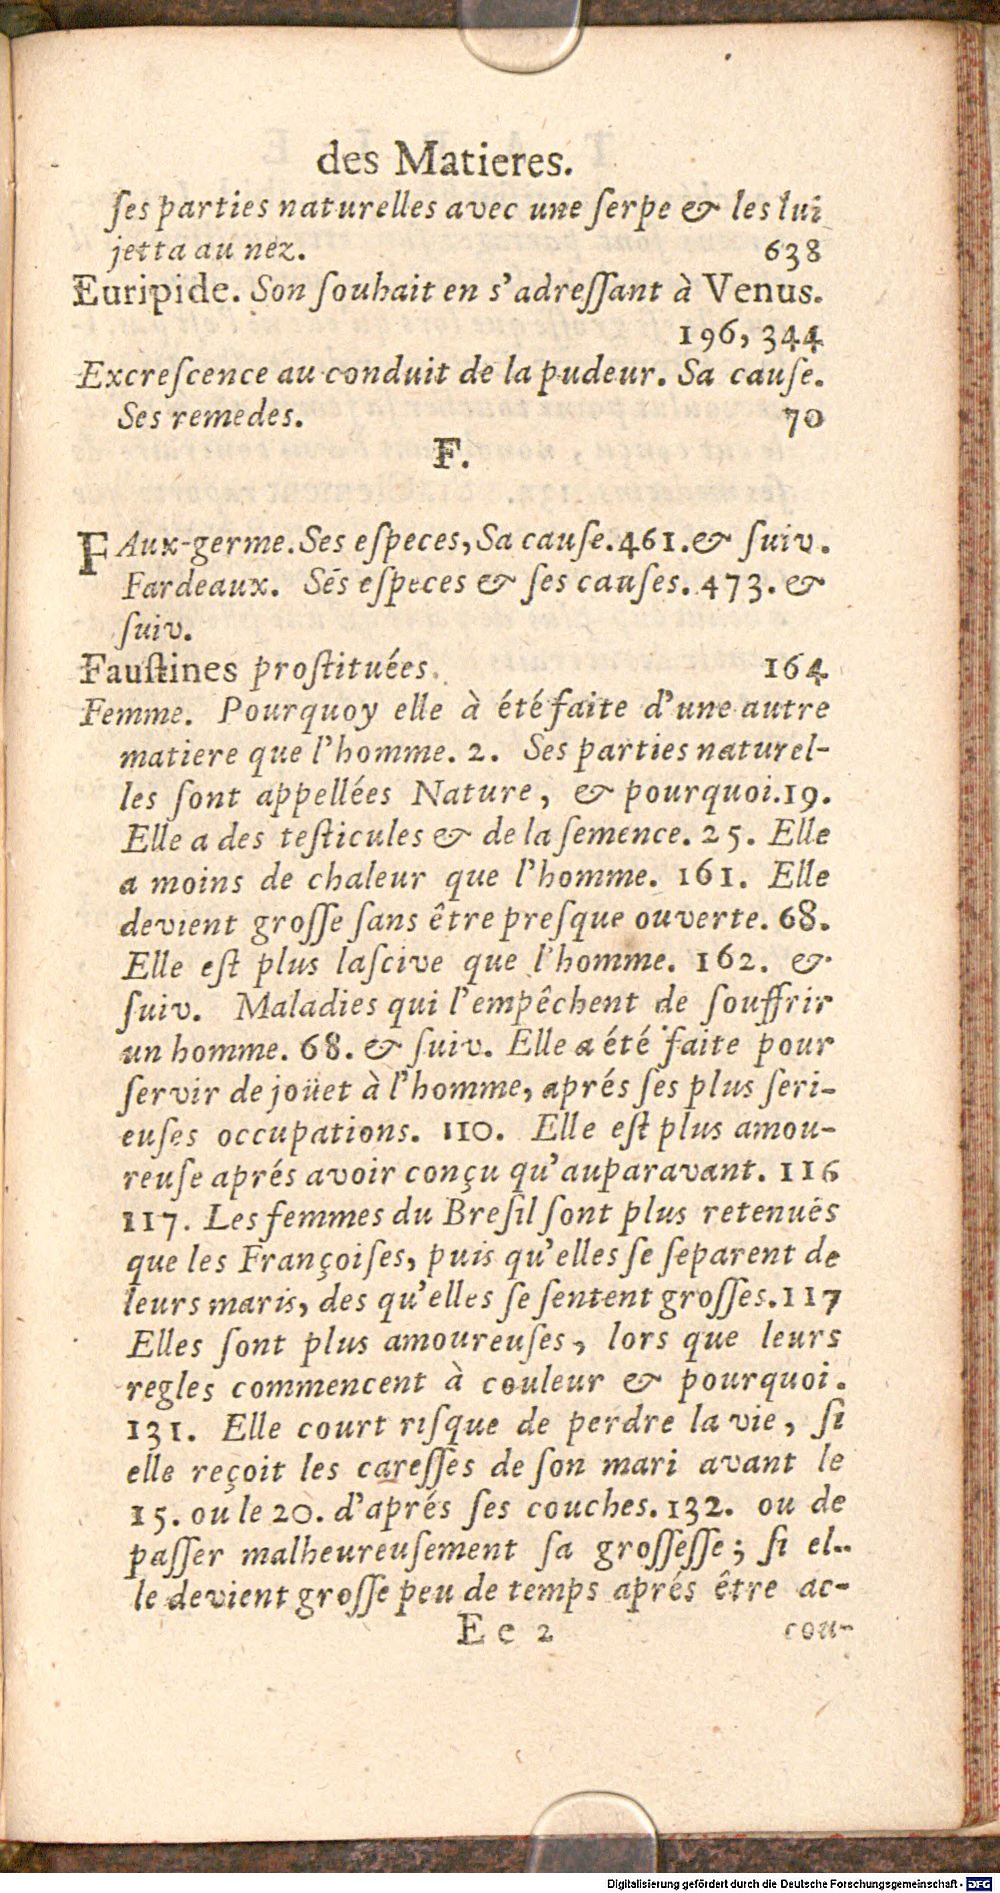 des Matieres.
ſes parties naturelles avec une ſerpe & les lui
jetta au nez. 638
Euripide. Son ſouhait en s'adreſſant à Venus.
196, 344
Excreſcence au conduit de la pudeur. Sa cauſe.
Ses remedes. 70
F.
FAux-germe. Ses eſpeces, Sa cauſe. 461. & ſuiv.
Fardeaux. Ses eſpeces & ſes cauſes. 473. &
ſuiv.
Fauſtines proſtituées. 164
Femme. Pourquoy elle à été faite d'une autre
matiere que l'homme. 2. Ses parties naturel-
les ſont appellées Nature, & pourquoi. 19.
Elle a des teſticules & de la ſemence. 25. Elle
a moins de chaleur que l'homme. 161. Elle
devient groſſe ſans être preſque ouverte. 68.
Elle eſt plus laſcive que l'homme. 162. &
ſuiv. Maladies qui l'empêchent de ſouffrir
un homme. 68. & ſuiv. Elle a été faite pour
ſervir de joüet à l'homme, aprés ſes plus ſeri-
euſes occupations. 110. Elle eſt plus amou-
reuſe aprés avoir conçu qu'auparavant. 116
117. Les femmes du Breſil ſont plus retenuës
que les Françoiſes, puis qu'elles ſe ſeparent de
leurs maris, des qu'elles ſe ſentent groſſes. 117
Elles ſont plus amoureuſes, lors que leurs
regles commencent à couleur & pourquoi.
131. Elle court riſque de perdre la vie, ſi
elle reçoit les careſſes de ſon mari avant le
15. ou le 20. d'aprés ſes couches. 132. ou de
paſſer malheureuſement ſa groſſeſſe; ſi el-
le devient groſſe peu de temps aprés être ac-
Ee 2 cou-
Digitalisierung gefördert durch die Deutsche Forschungsgemeinschaft - DFG